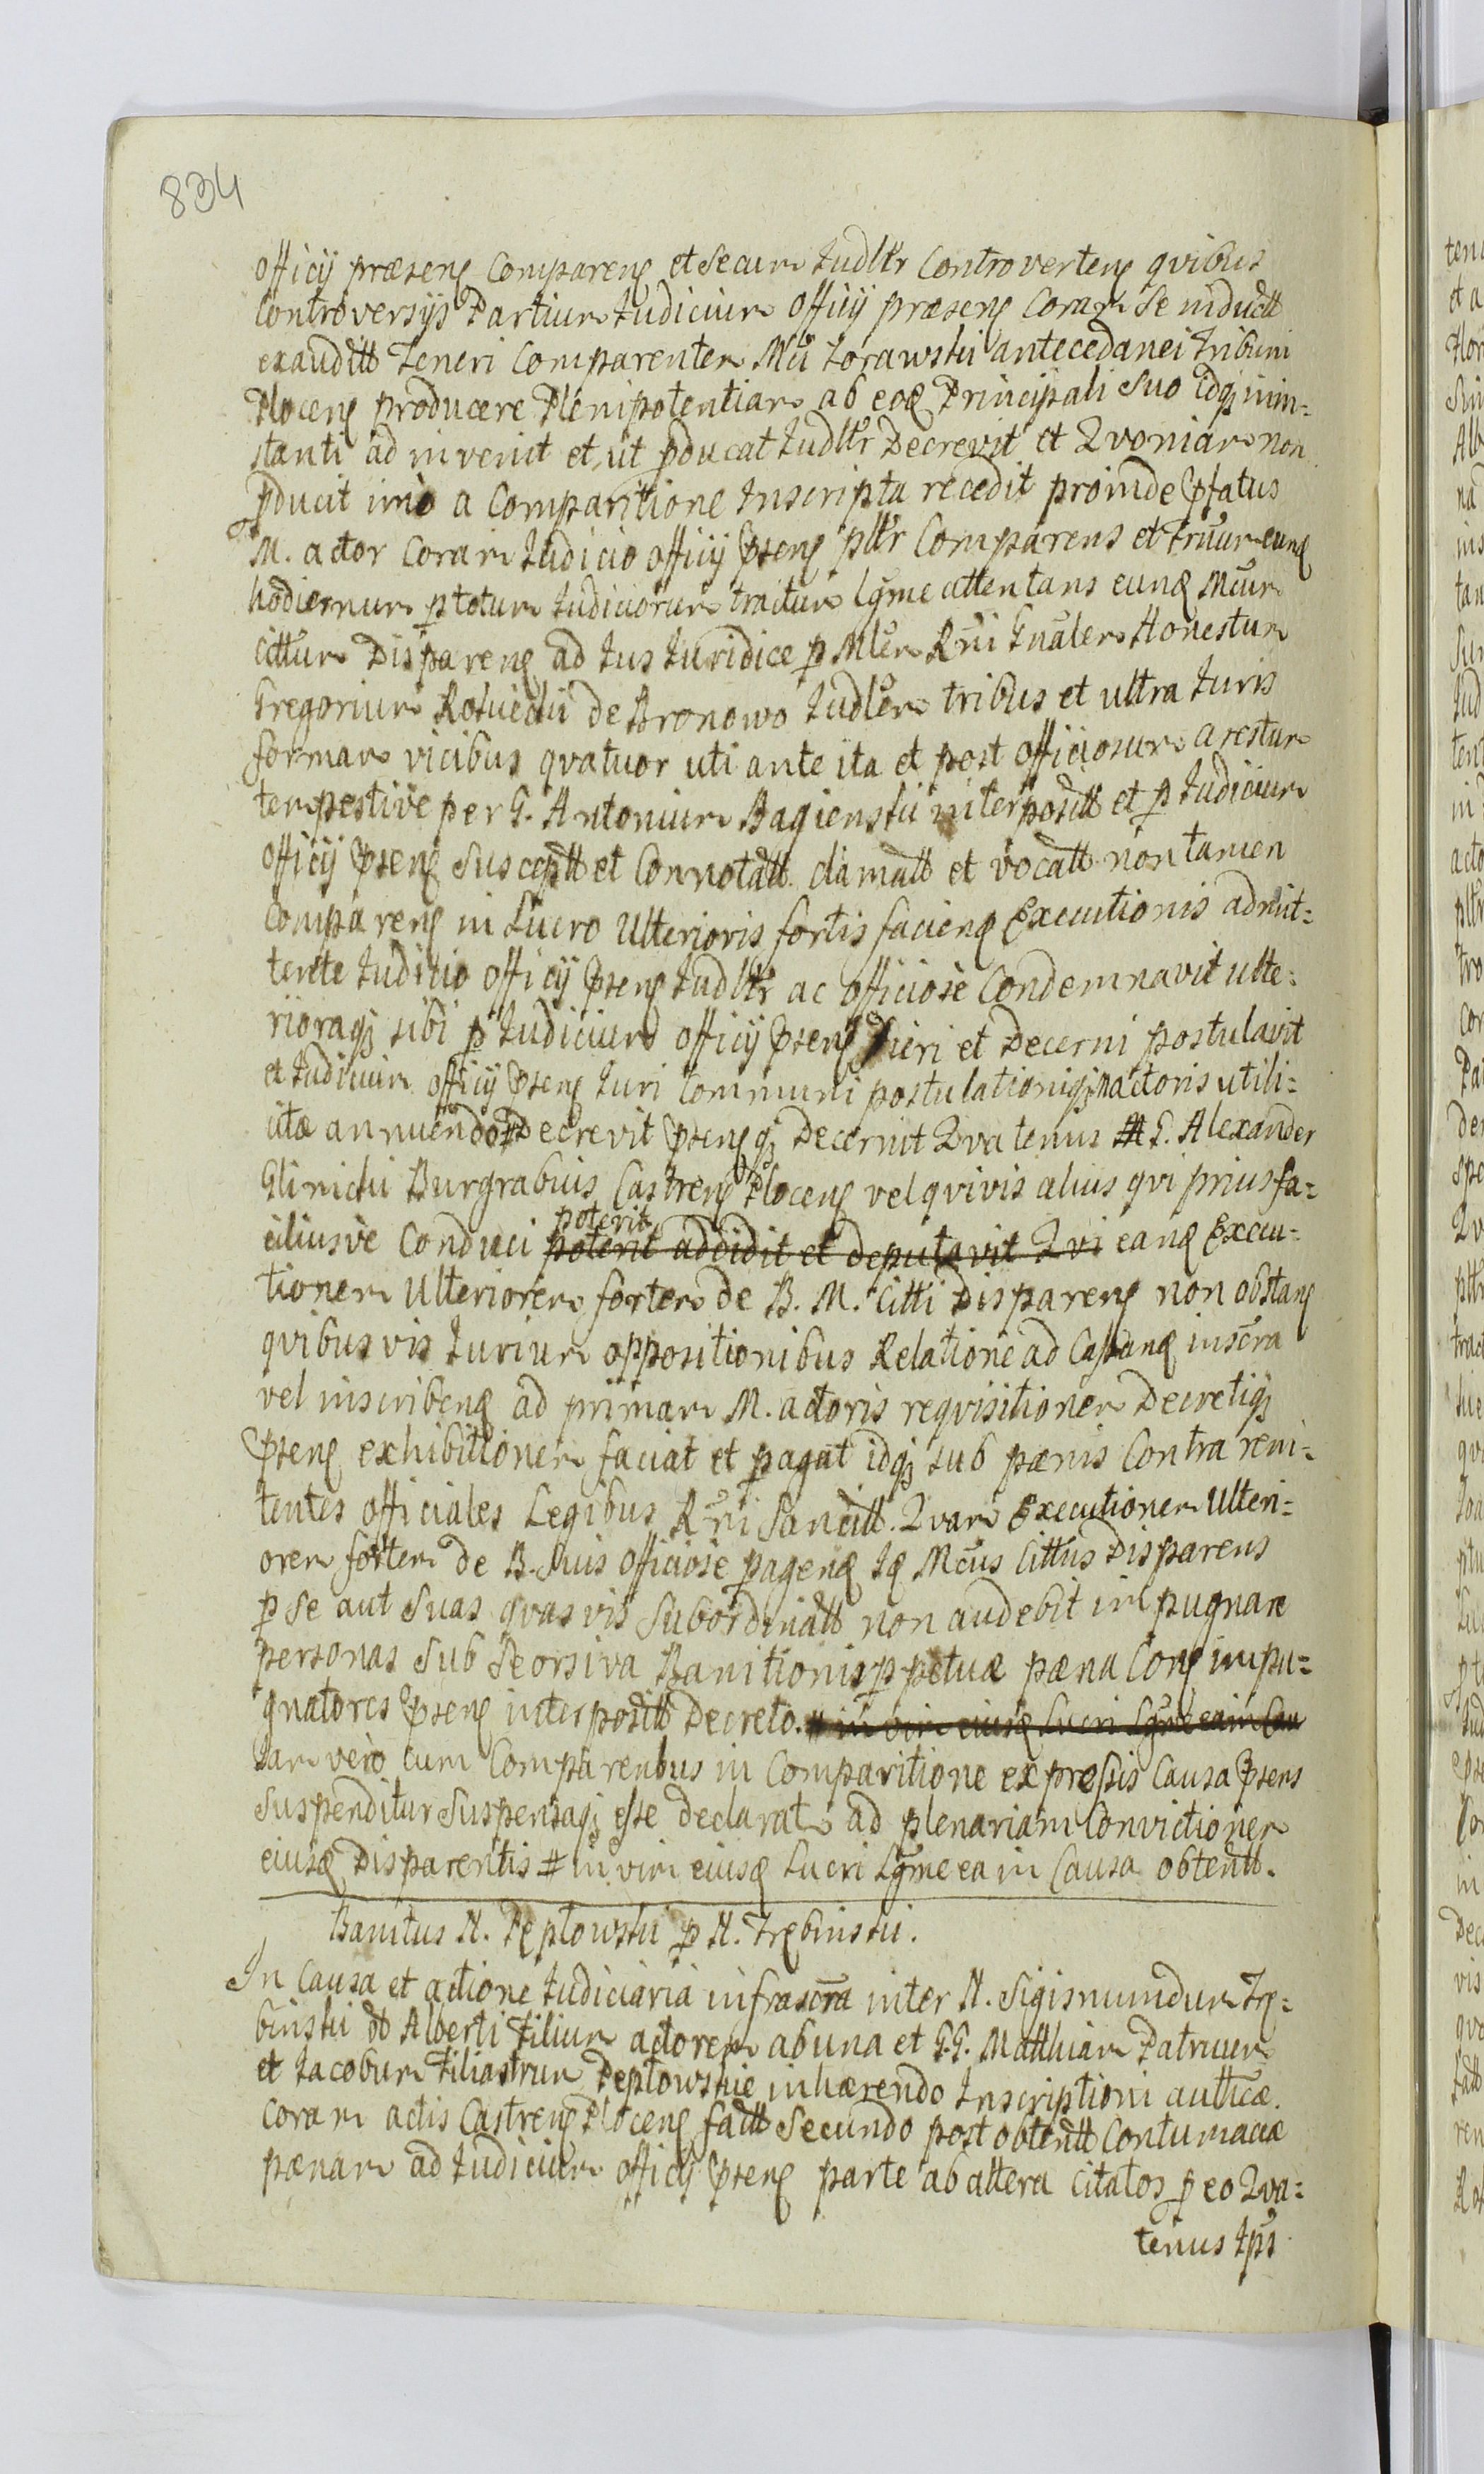 834
officij præsens Comparens et Secum Judltr Controvertens qvibus
Controversijs Partium Judicium officij præsens Coram Se inductt
exauditt Teneri Comparentem Mci Zorawski antecedanei Tribuni
Plocens producere Plenipotentiam ab eod Principali Suo idq; inin=
stanti ad invenit et ut pducat Judltr Decrevit et Qvoniam non
pducit imo a Comparitione Inscripta recedit proinde Pfatus
M. actor Coram Judicio officij Psens pltr Comparens et Trnum eund
hodiernum p totum Judiciorum tractum lgme attentans eund Mcum
Cittum Disparens ad Jus Juridice p Mlem Rni Gnalem Honestum
Gregorium Rosuecki de Bronowo Judlem tribus et ultra Juris
formam vicibus qvatuor uti ante ita et post officiosum arestum
tempestive per G. Antonium Bagienski interpositt et p Judicium
officij Psens Susceptt et Connotatt clamatt et vocatt non tamen
Comparens in Lucro Ulterioris fortis faciend Executionis admit=
tente Judicio officij Psens Judltr ac officiose Condemnavit ulte=
rioraq; sibi p Judicium officij Psens fieri et Decerni postulavit
et Judicium officij Psens Juri Communi postulationiq; M actoris utili=
itæ annuendo Decrevit Psensq; Decernit Qvatenus G. Alexander
Glinicki Burgrabius Castrens Plocens vel qvivis alius qvi prius fa=
ciliusve Conduci poterit
poterit addidit et deputavit Qvi eand Execu=
tionem Ulteriorem fortem de B. M. Citti Disparens non obstans
qvibusvis Jurium oppositionibus Relatione ad Cassand inscra
vel inscribend ad primam M. actoris reqvisitionem Decretiq;
Psens exhibitionem faciat et pagat idq; sub pænis Contra reni=
tentes officiales Legibus Rni Sancitt. Qvam Executionem Ulteri=
orem fortem de B. Suis officiose pagend Id Mcus Cittus Disparens
p Se aut Suas qvasvis Subordinatt non audebit impugnare
personas Sub Seorsiva Banitionis ppetuæ pæna Cons impu=
gnatores Psens interpositt Decreto. # in vim eiusd Lucri Lgme ea in Cau
Jam vero cum Comparenbus in Comparitione expressis Causa Psens
Suspenditur Suspensaq; esse declarat ad plenariam Convictionem
eiusd Disparentis # in vim eiusd Lucri Lgme ea in Causa obtentt.
Banitus N. Pęplowski p N. Trębinski.
In Causa et actione Judiciaria infrascra inter N. Sigismundum Trę=
binski ol Alberti Filium actorem ab una et G.G. Matthiam Patruum
et Jacobum Filiastrum Peplowskie inhærendo Inscriptioni auticæ.
Coram actis Castrens Plocens fatt Secundo post obtentt Contumaciæ
pænam ad Judicium officij Psens parte ab altera Citatos p eo Qva=
tenus Ipsi